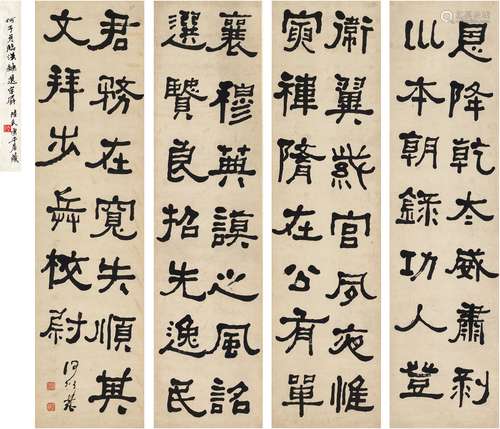 恩降乾太威肅剥
巛本朝錄功入登
衛翼紫宮夙夜惟
寅褘隋在公有單
襄穆典謨之風詔
選賢良招先逸民
君務在寬失順其
文拜步兵校尉
何紹基
何子貞臨漢